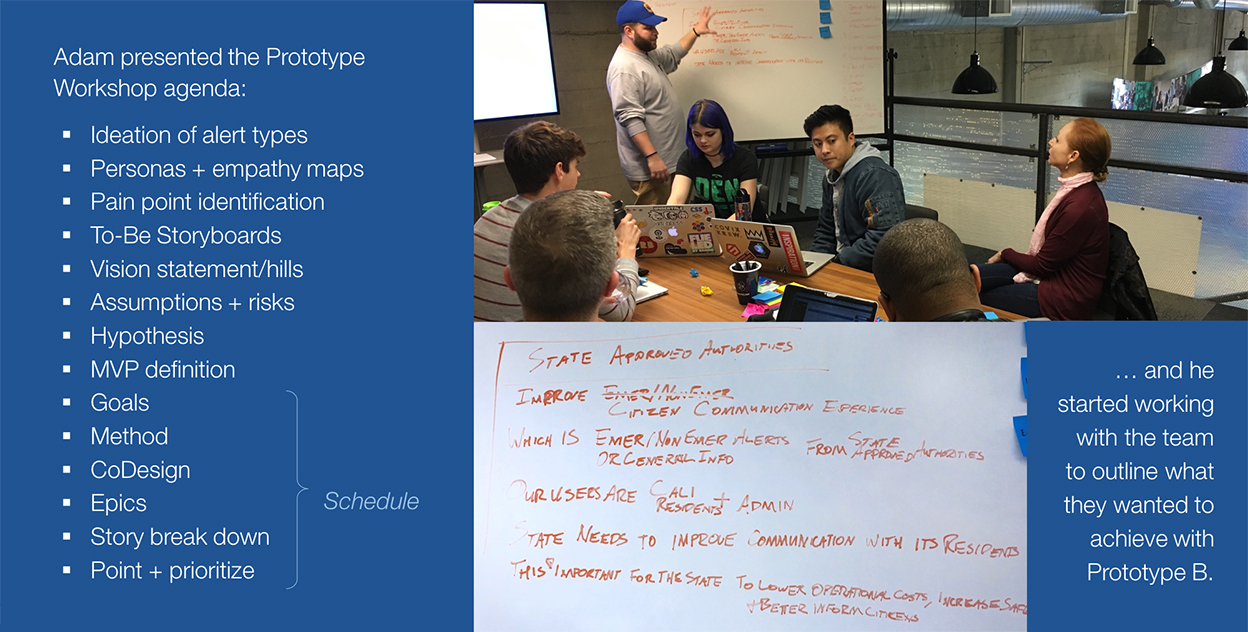 Adam presented the Prototype
Workshop agenda:
▪ Ideation of alert types
▪ Personas + empathy maps
▪ Pain point identification
▪ To-Be Storyboards
▪ Vision statement/hills
▪ Assumptions + risks
▪ Hypothesis
▪ MVP definition
▪ Goals
▪ Method
▪ CoDesign
▪ Epics
▪ Story break down
▪ Point + prioritize
Schedule
STATE APPROVED AUTHORITIES
IMPROVE EMER/NONEMER
CITIZEN COMMUNICATION EXPERIENCE
WHICH IS EMER/NON EMER ALERTS FROM STATE
OR GENERAL INFO APPROVED AUTHORITIES
OUR USERS ARE CALI
RESIDENTS + ADMIN
STATE NEEDS TO IMPROVE COMMUNICATION WITH ITS RESIDENTS
THIS IS IMPORTANT FOR THE STATE TO LOWER OPERATIONAL COSTS, INCREASE SAFE
+ BETTER INFORM CITIZENS
... and he
started working
with the team
to outline what
they wanted to
achieve with
Prototype B.